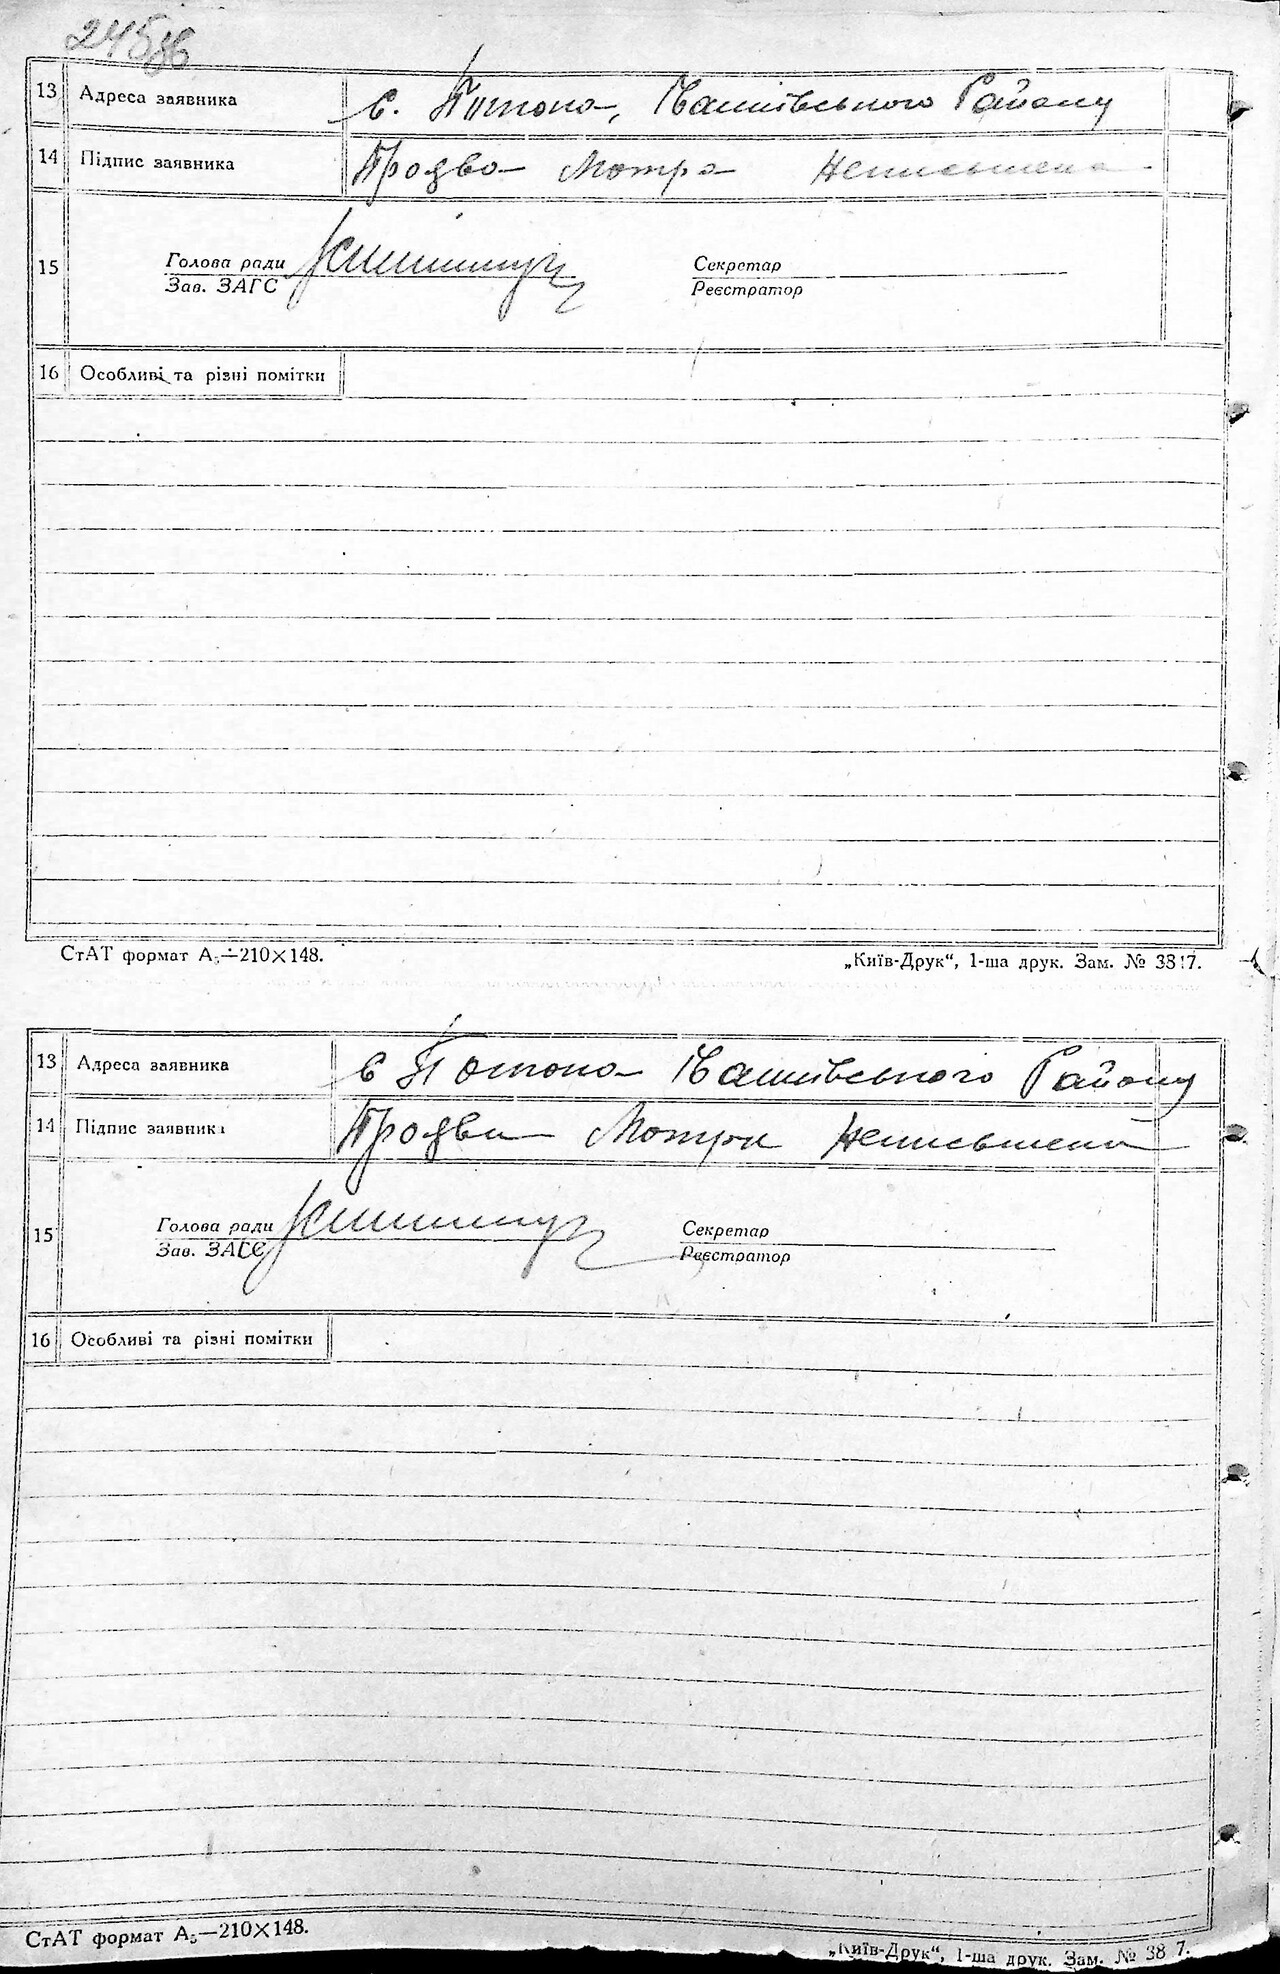 245зв
13 Адреса заявника с. Потока, Чашківського Району
14 Підпис заявника Продва Мотра Неписьмена
15 Голова ради Секретар
Зав. ЗАГС Реєстратор
16 Особливі та різні помітки
СтАТ формат А5—210×148. „Київ-Друк“, 1-ша друк. Зам. № 3817.
13 Адреса заявника с Потока Району
14 Підпис заявника Мотра Неписьмена
15 Голова ради Секретар
Зав. ЗАГС Реєстратор
16 Особливі та різні помітки
СтАТ формат А5—210×148. „Київ-Друк“, 1-ша друк. Зам. № 38 7.